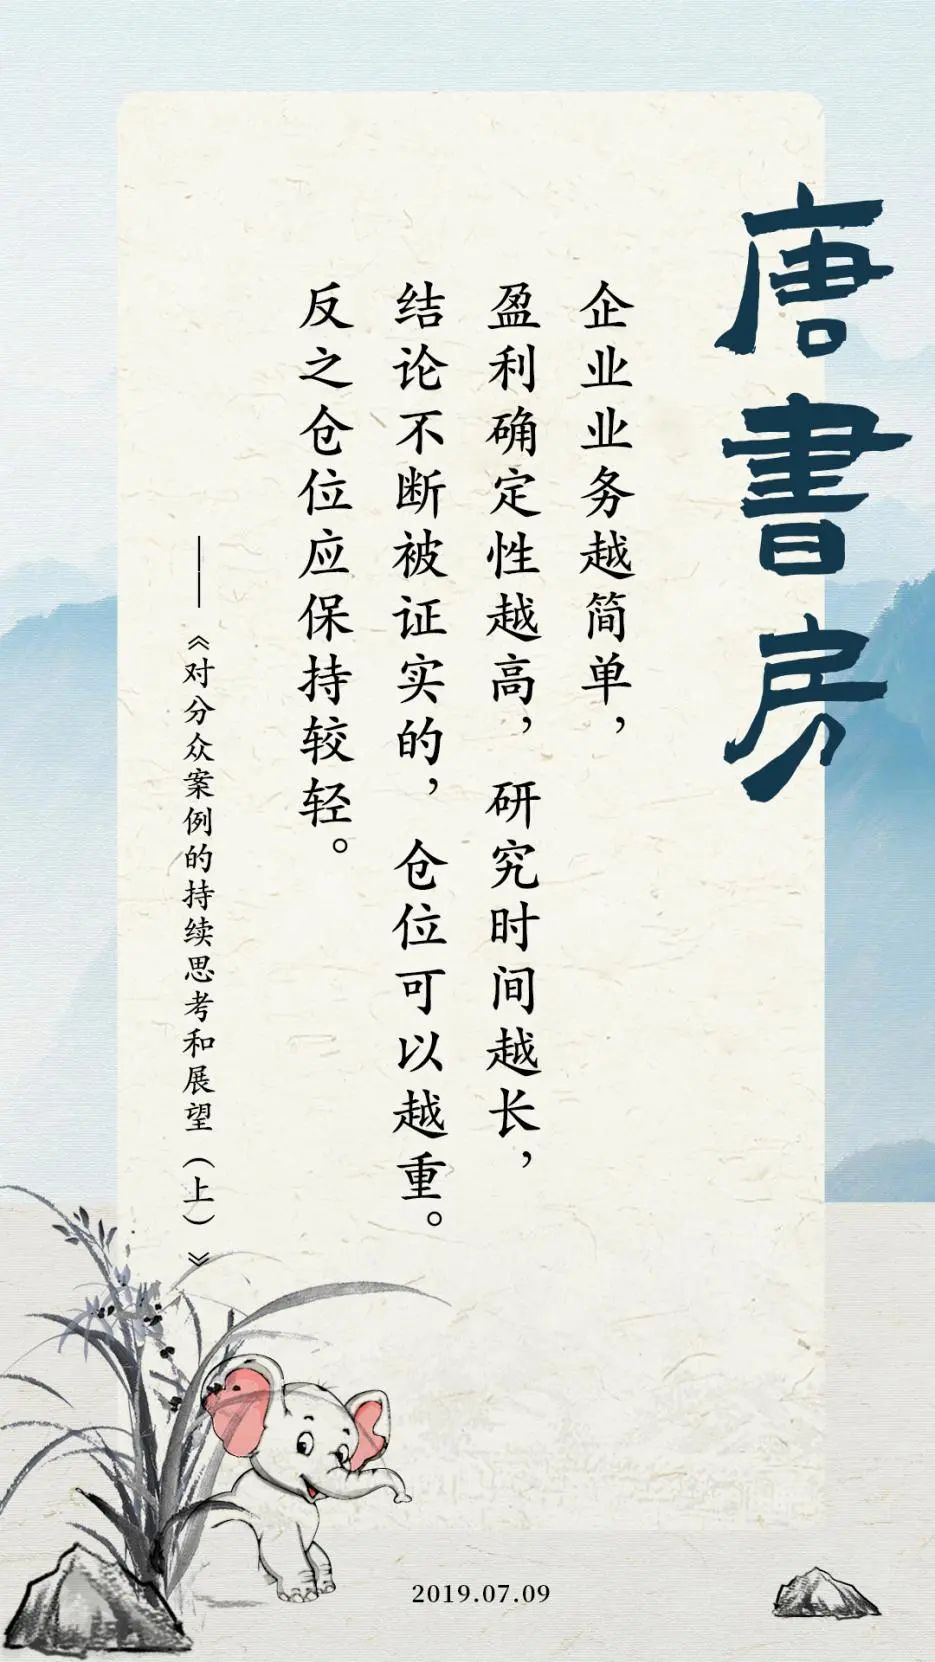 唐書房
企业业务越简单，
盈利确定性越高，研究时间越长，
结论不断被证实的，仓位可以越重。
反之仓位应保持较轻。
——《对分众案例的持续思考和展望（上）》
2019.07.09